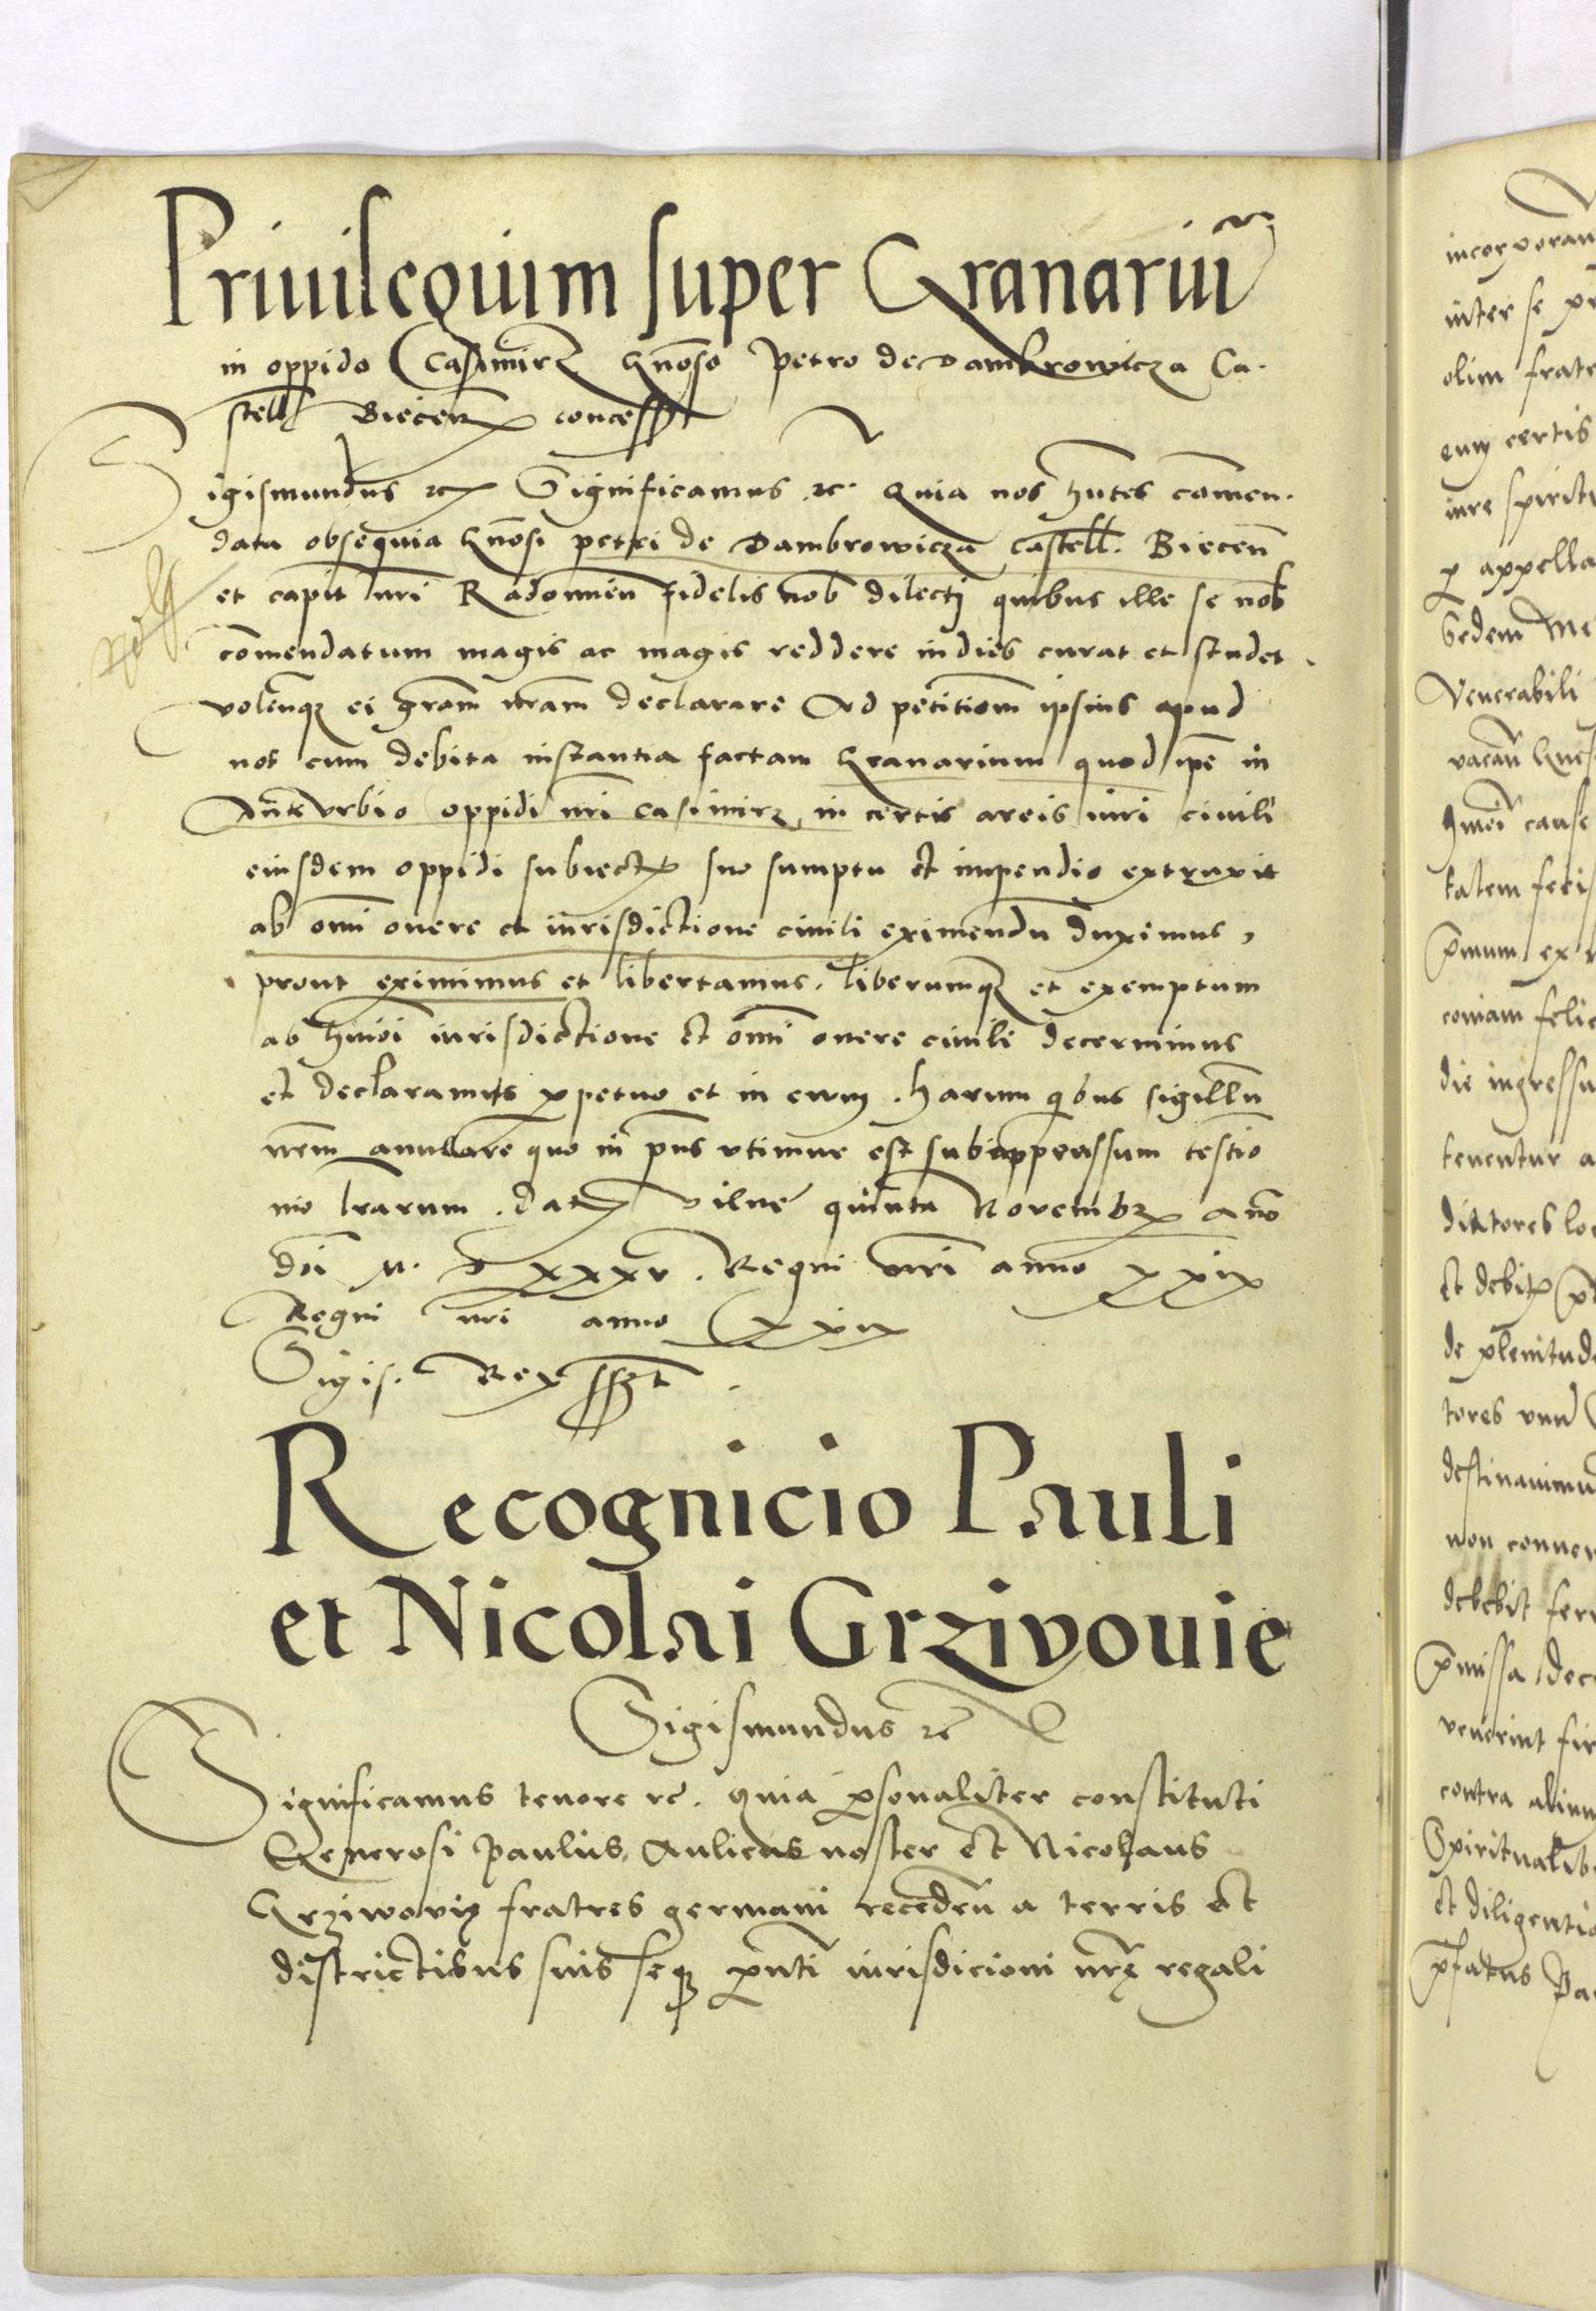 Priuilegium super Granariũ
in oppido Casimirz Gñoso Petro de Dambrowicza Ca-
stell Biecen̄ concess
Sigismundus rc Significamus rc. Quia nos hñtes com̄en-
data obsequia Gñosi petri de Dambrowicza castell. Biecen̄
et capit nr̄i Radomien̄ fidelis nob dilecti quibus ille se nob
com̄endatum magis ac magis reddere indies curat et studet.
volen̄qz ei gr̄am nr̄am declarare Ad petitiom̄ ipsius apud
nos cum debita instantia factam Granarium quod ip̄e in
Anteurbio oppidi nr̄i casimirz in certis areis iuri ciuili
eiusdem oppidi subiectis suo sumptu et impendio extruxit
ab om̄i onere et iurisdictione ciuili eximendũ duximus,
prout eximimus et libertamus. liberumqz et exemptum
ab hm̄õi iurisdictione et om̄i onere ciuili decernimus
et declaramus ꝑpetuo et in ewm. harum qibus sigillũ
nr̄m anullare quo in pñs vtimur est subimpressum testio
nio lr̄arum. Dat Vilne quinta Novembr An̄o
dñi M. D XXXV. Regni nr̄i anno XXIX
Regni nr̄i anno XXIX
Sigis. Rex sszt
Recognicio Pauli
et Nicolai Grzivouie
Sigismundus rc
Significamus tenore rc. quia ꝑsonaliter constituti
Generosi Paulus Aulicus noster et Nicolaus
Grziwovij fratres germani receden̄ a terris et
districtibus suis seqz pñti iurisdicioni nr̄ę regali
incorporan
inter se pr
olim frate
cum certis
iure spiritu
ꝑ appella
Sedem
Venerabili
vacan̄
hm̄õi cause
talem fecis
p̄mum ex
die ingressu
tenentur a
ditatores lo
et debit
de plenitud
tores
destinauimu
non conuer
debebit fer
p̄missa dec
venerint fir
contra aliu
Spiritualib
et diligentia
p̄fatus Pa